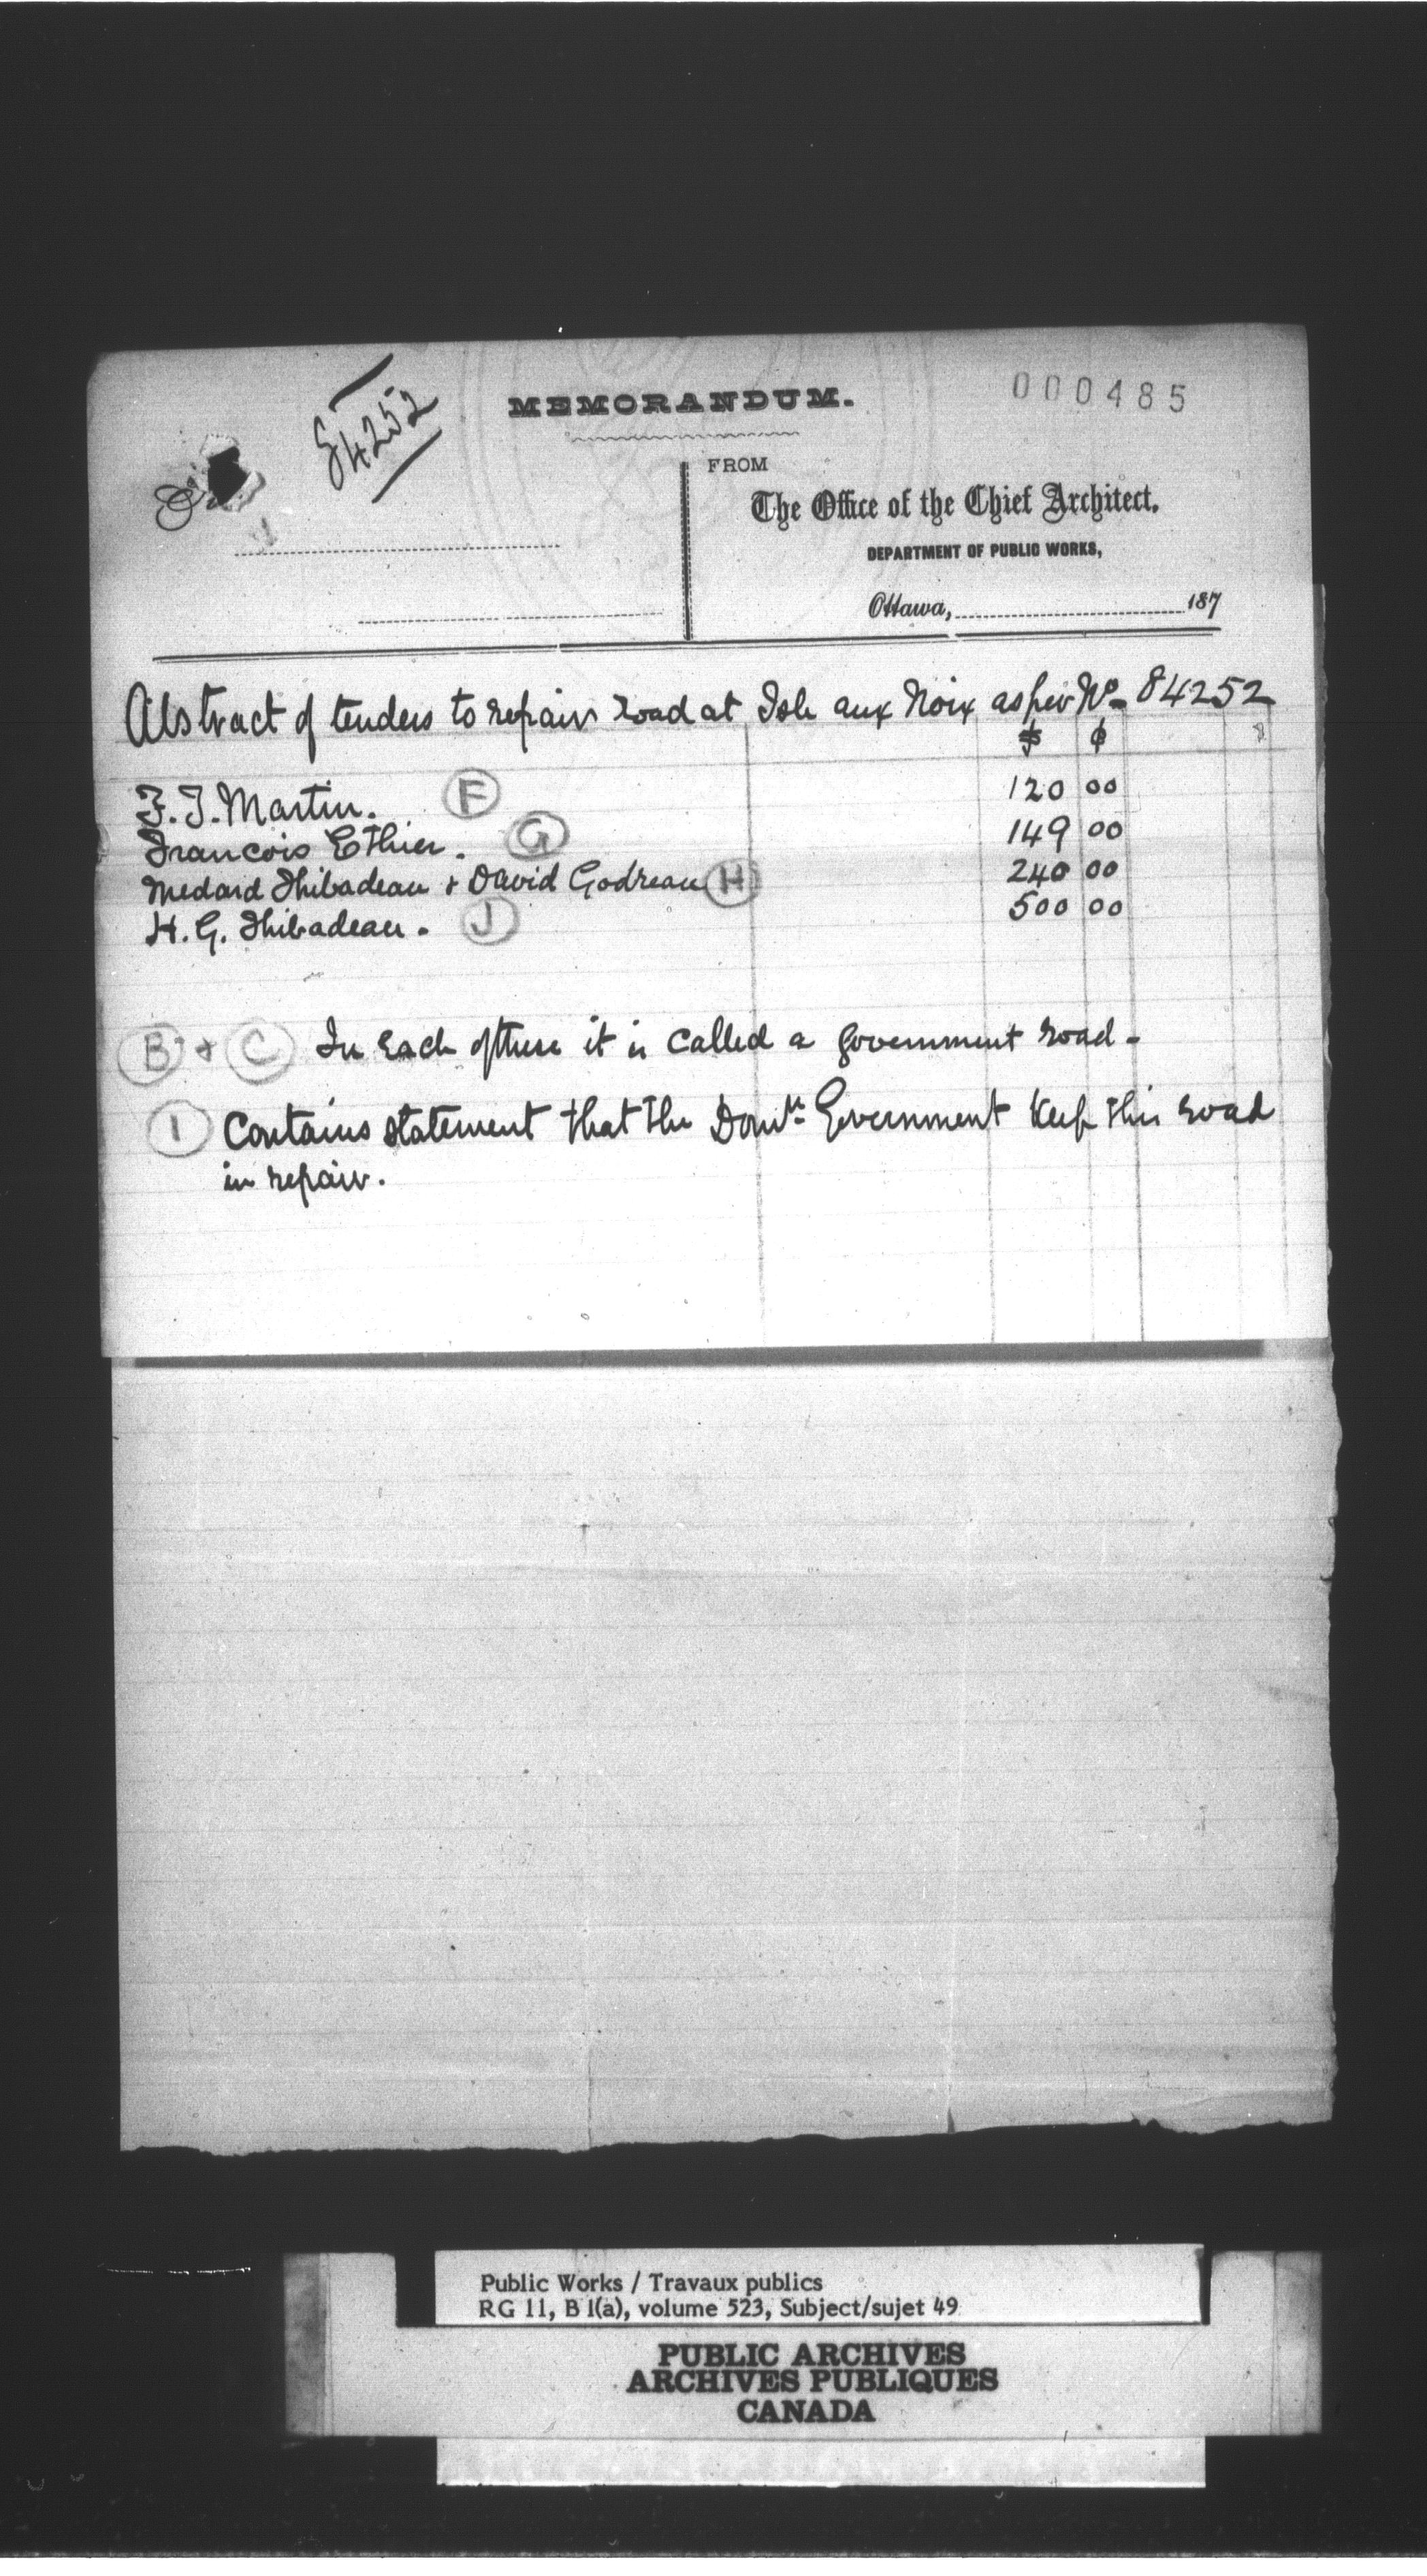 000485
84252
MEMORANDUM.
FROM
The Office of the Chief Architect.
DEPARTMENT OF PUBLIC WORKS,
Ottawa, 187
Abstract of tenders to repair road at Isle aux Noix as per No. 84252
$ ¢
F. J. Martin. F 120 00
Francois Ethier. G 149 00
Medard Thibadeau & David Godreau H 240 00
H. G. Thibadeau. J 500 00
B & C In each of these it is called a Government road-
1 Contains statement that the Domn. Government keep this road
in repair.
Public Works / Travaux publics
RG 11, B 1(a), volume 523, Subject/sujet 49
PUBLIC ARCHIVES
ARCHIVES PUBLIQUES
CANADA